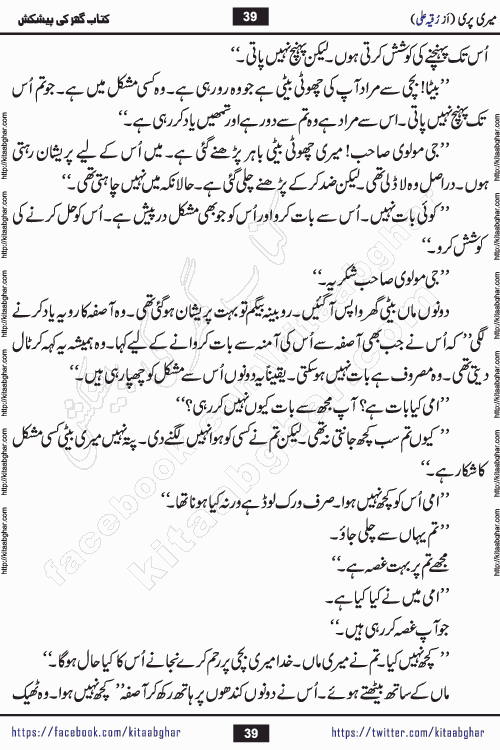 میری پری (از رُقیہ علی)
39
کتاب گھر کی پیشکش
اُس تک پہنچنے کی کوشش کرتی ہوں۔ لیکن پہنچ نہیں پاتی۔‘‘
’’بیٹا! بچی سے مراد آپ کی چھوٹی بیٹی ہے جو وہ رو رہی ہے۔ وہ کسی مشکل میں ہے۔ جو تم اُس
تک پہنچ نہیں پاتی۔ اس سے مراد ہے وہ تم سے دور ہے اور تمھیں یاد کر رہی ہے۔‘‘
’’جی مولوی صاحب! میری چھوٹی بیٹی باہر پڑھنے گئی ہے۔ میں اُس کے لیے پریشان رہتی
ہوں۔ دراصل وہ لاڈلی تھی۔ لیکن ضد کر کے پڑھنے چلی گئی ہے۔ حالانکہ میں نہیں چاہتی تھی۔‘‘
’’کوئی بات نہیں۔ اُس سے بات کرو اور اُس کو جو بھی مشکل درپیش ہے۔ اُس کو حل کرنے کی
کوشش کرو۔‘‘
’’جی مولوی صاحب شکریہ۔‘‘
دونوں ماں بیٹی گھر واپس آ گئیں۔ روبینہ بیگم تو بہت پریشان ہو گئی تھی۔ وہ آصفہ کا رویہ یاد کرنے
لگی’’ کہ اُس نے جب بھی آصفہ سے اُس کی آمنہ سے بات کروانے کے لیے کہا۔ وہ ہمیشہ یہ کہہ کر ٹال
دیتی تھی۔ وہ مصروف ہے بات نہیں ہو سکتی۔ یقیناً یہ دونوں اُس سے مشکل کو چھپا رہی ہیں۔‘‘
’’امی کیا بات ہے؟ آپ مجھ سے بات کیوں نہیں کر رہی؟‘‘
’’کیوں تم سب کچھ جانتی نہ تھی۔ لیکن تم نے کسی کو ہوا نہیں لگنے دی۔ پتہ نہیں میری بیٹی کسی مشکل
کا شکار ہے۔‘‘
’’امی اُس کو کچھ نہیں ہوا۔ صرف ورک لوڈ ہے ورنہ کیا ہونا تھا۔‘‘
’’تم یہاں سے چلی جاؤ۔
مجھے تم پر بہت غصہ ہے۔‘‘
’’امی میں نے کیا کیا ہے۔
جو آپ غصہ کر رہی ہیں۔‘‘
’’کچھ نہیں کیا۔ تم نے میری ماں۔ خدا میری بچی پر رحم کرے نجانے اُس کا کیا حال ہوگا۔‘‘
ماں کے ساتھ بیٹھتے ہوئے۔ اُس نے دونوں کندھوں پر ہاتھ رکھ کر آصفہ’’ کچھ نہیں ہوا۔ وہ ٹھیک
http://kitaabghar.com
http://kitaabghar.com
http://kitaabghar.com
http://kitaabghar.com
http://kitaabghar.com
http://kitaabghar.com
http://kitaabghar.com
http://kitaabghar.com
http://kitaabghar.com
http://kitaabghar.com
http://kitaabghar.com
http://kitaabghar.com
کتاب گھر کی پیشکش
facebook.com/kitaabghar
kitaabghar.com
https://facebook.com/kitaabghar
39
https://twitter.com/kitaabghar